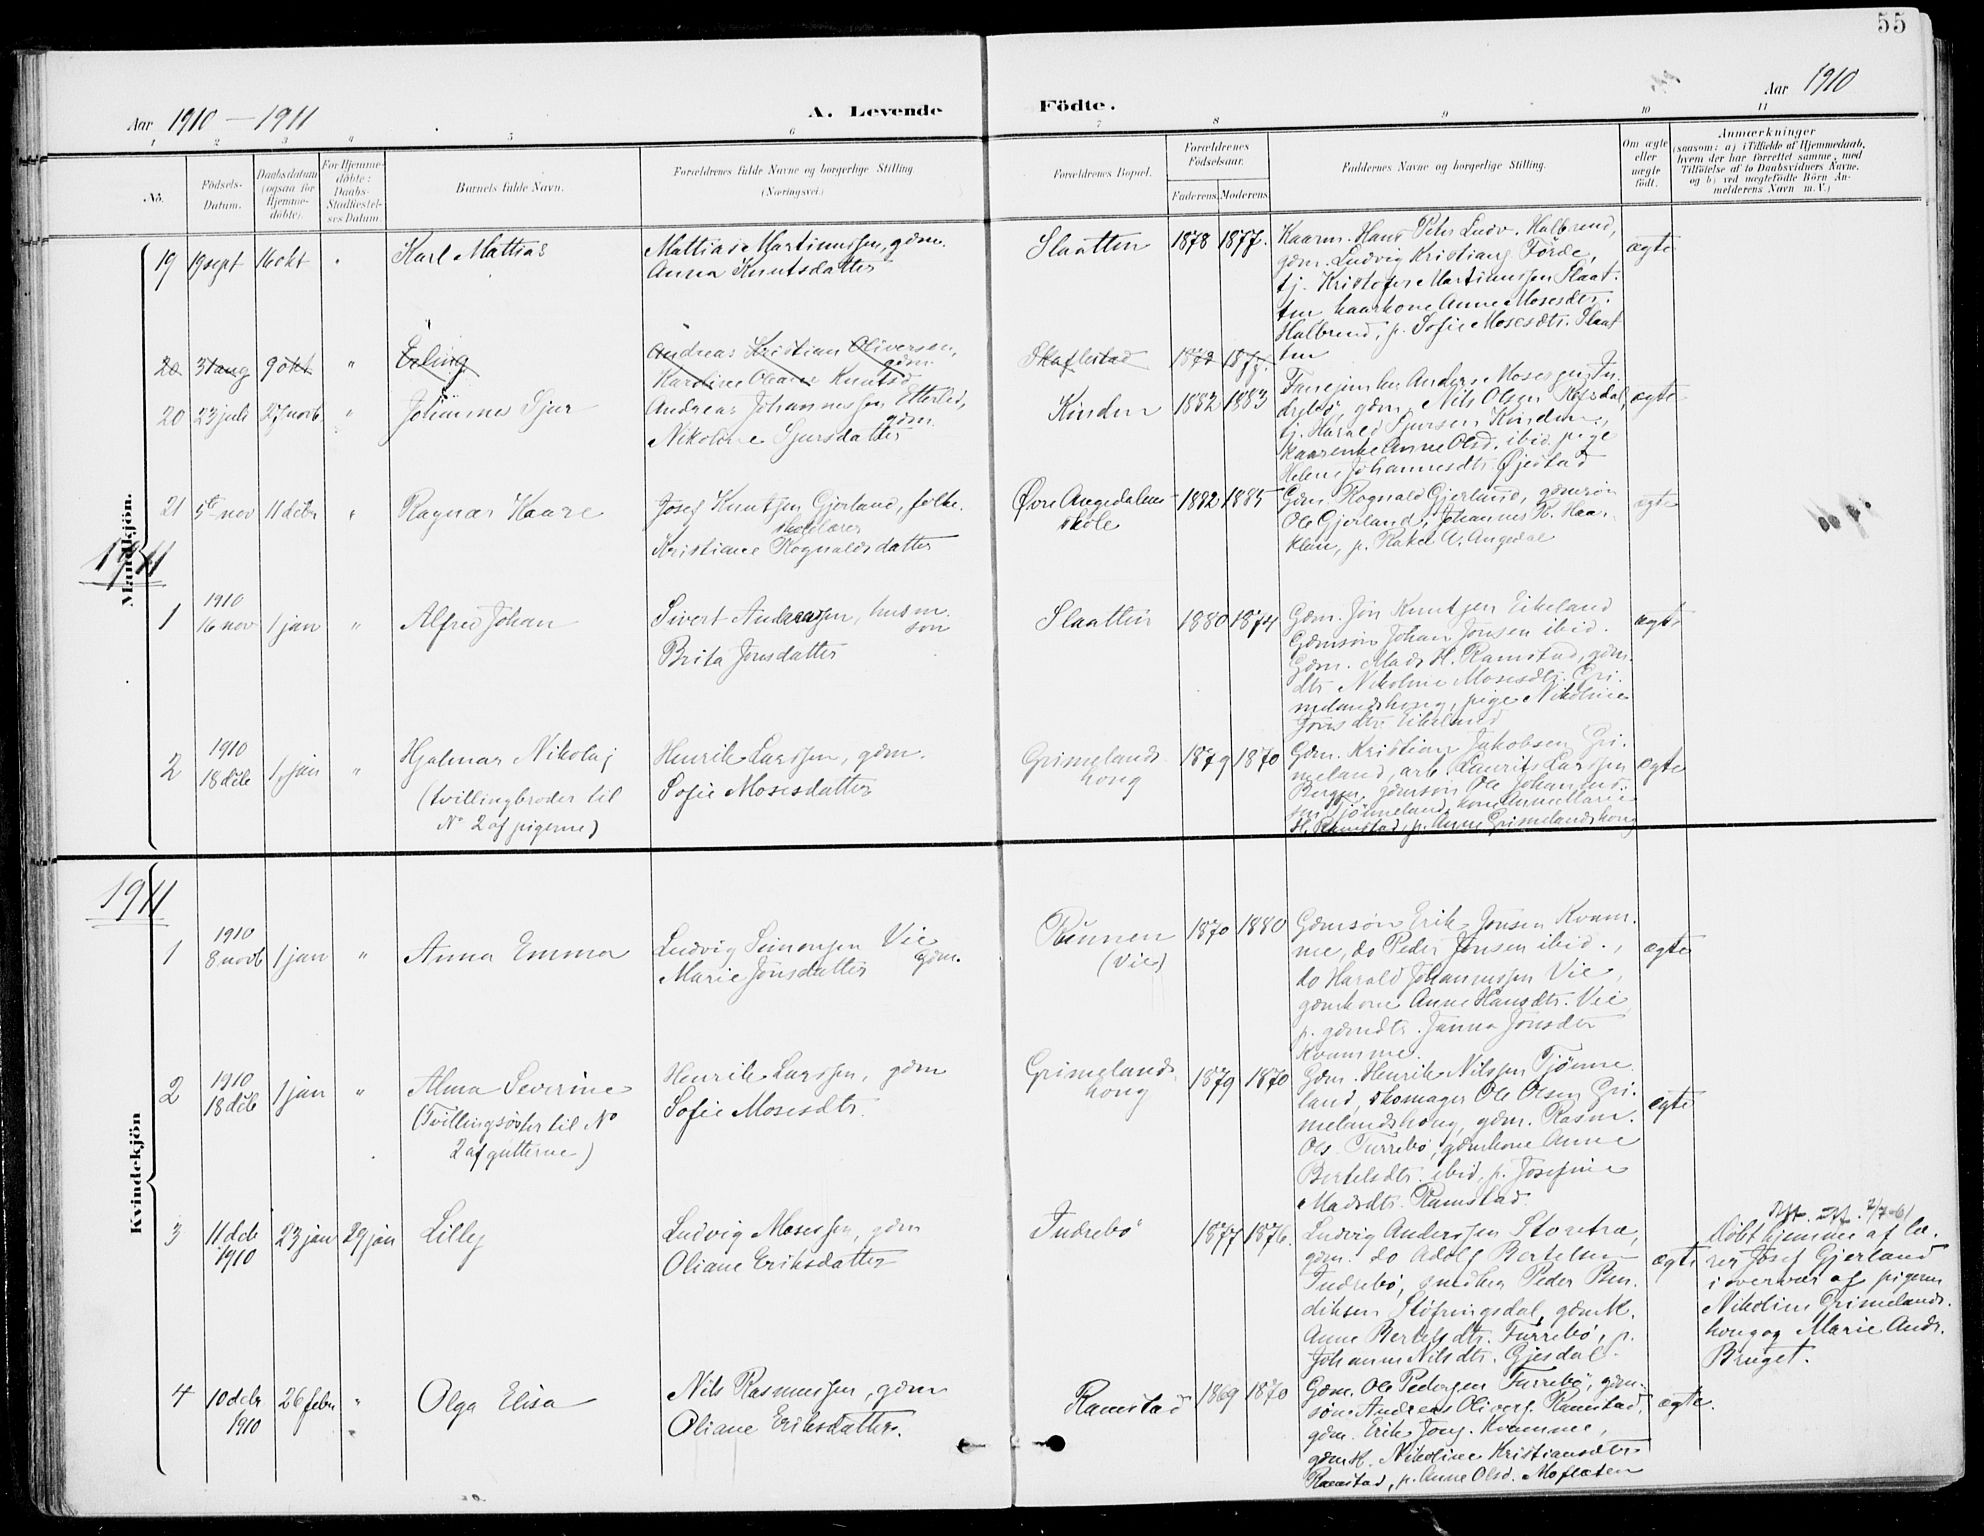 55
Aar 1910 – 1911
A. Levende
Födte.
Aar 1910
1 2 3 4 5 6 7 8 9 10 11
No.
Födsels-
Datum.
Daabsdatum
(ogsaa for
Hjemme-
döbte).
For Hjemme-
döbte:
Daabs-
Stadfæstel-
ses Datum.
Barnets fulde Navn.
Forældrenes fulde Navne og borgerlige Stilling
(Næringsvei.)
Forældrenes Bopæl.
Forældrenes
Födselsaar.
Faderens. Moderens.
Faddernes Navne og borgerlige Stilling.
Om ægte
eller
uægte
födt.
Anmærkninger
(saasom: a) i Tilfælde af Hjemmedaab,
hvem der har forrettet samme, med
Tilföielse af to Daabsvidners Navne.
og b) ved uægtefödte Börn An-
melderens Navn m. V.)
Mandkjön.
19 19 sept 16 okt
Karl Mattias
Mattias Martinussen, gdm.
Anna Knutsdatter
Slaatten 1878 1877.
Kaarm. Hans Peter Ludv. Halbrend,
gdm. Ludvig Kristians. Förde,
tj. Kristofer Martinussen Slaat-
ten kaarkone Anne Mosesdtr.
Halbrend, p. Sofie Mosesdtr. Slaat
ten
ægte
20 31 aug 9 okt "
Erling
Andreas Kristian Oliversen,
gdm.
Karoline Oliane Knutsd
Skaflestad
20 23 juli 27 novb "
Johannes Sjur
Andreas Johannessen Etterlid,
gdm.
Nikoline Sjursdatter
Kinden 1882 1883
drebö, gdm. Nils Olsen Refsdal,
tj. Harald Sjursen Kinden,
kaarenke Anne Olsd. ibid. pige
Helene Johannesdtr. Øjestad
ægte
21 5te nov 11 debr "
Ragnar Kaare
Josef Knutsen Gjerland, folke-
skolelærer
Kristiane Rognaldsdatter
Øvre Angedalens
skole
1882 1885
Gdm. Rognald Gjerland, gdmsön
Ole Gjerland, Johannes K. Haa-
klen, p. Rakel A. Angedal
ægte
1911
1 1910
16 nov 1 jan "
Alfred Johan
Sivert Andersen, husm.
son
Brita Jonsdatter
Slaatten 1880 1874
Gdm. Jon Knutsen Eikeland
Gdmsön Johan Jonsen ibid.
Gdm. Mads H. Ramstad, gdm.
dtr. Nikoline Mosesdtr. Gri-
melandshoug, pige Nikoline
Jonsdtr Eikeland
ægte
2 1910
18 debr 1 jan "
Hjalmar Nikolaj
(tvillingbroder til
No 2 af pigerne)
Henrik Larssen, gdm.
Sofie Mosesdatter
Grimelands
houg
1879 1870
Gdm. Kristian Jakobsen Gri-
meland, arb. Laurits Larssen
Bergen, gdmsön Ole Johan Hend.
sen Tjönneland, kone Anne Marie
H. Ramstad, p. Anne Grimelandshoug
ægte
Kvindekjön
1911
1 1910
8 novb 1 jan "
Anna Emma
Ludvig Simonsen Vie
gdm.
Marie Jonsdatter
Rünnen
(Vie)
1870 1880
Gdmsön Erik Jonsen Kvam-
me, do Peder Jonsen ibid.,
do Harald Johannessen Vie,
gdmkone Anne Hansdtr. Vie
p. gdmdtr. Janna Jonsdtr
Kvamme.
ægte
2 1910
18 debr 1 jan "
Alma Severine
(Tvillingsöster til No
2 af gutterne)
Henrik Larssen, gdm
Sofie Mosesdtr.
Grimelands
houg
1879 1870
Gdm. Henrik Nilssen Tjönne
land, skomager Ole Olsen Gri-
melandshoug, gdm. Rasm.
Ols. Furrebø, gdmkone Anne
Bertelsdtr. ibid, p. Josefine
Madsdtr. Ramstad
ægte
3 11 deb
1910 23 jan 29 jan
Lilly
Ludvig Mosessen, gdm
Oliane Eriksdatter
Indrebö
1877 1876.
Ludvig Anderssen Storetræ,
gdm. do Adolf Bertelsen
Indrebö, snedker Peder Ben-
diksen Stöfringsdal, gdmk.
Anne Bertelsdtr. Furrebö, p.
Johanne Nilsdtr. Gjesdal.
ægte
2/7-61
Döbt hjemme af læ-
rer Josef Gjerland
i overvær af pigerne
Nikoline Grimelands-
houg og Marie Andr.
Bruget.
4 10 debr
1910 26 febr "
Olga Elisa
Nils Rasmussen, gdm
Oliane Eriksdatter.
Ramstad 1869 1870
Gdm. Ole Pedersen Furrebö, gdm-
sön Andreas Olivers. Ramstad,
gdm. Erik Jons. Kvamme,
gdmk. Nikoline Kristiansdtr
Ramstad, p. Anne Olsd. Moflaten
ægte.